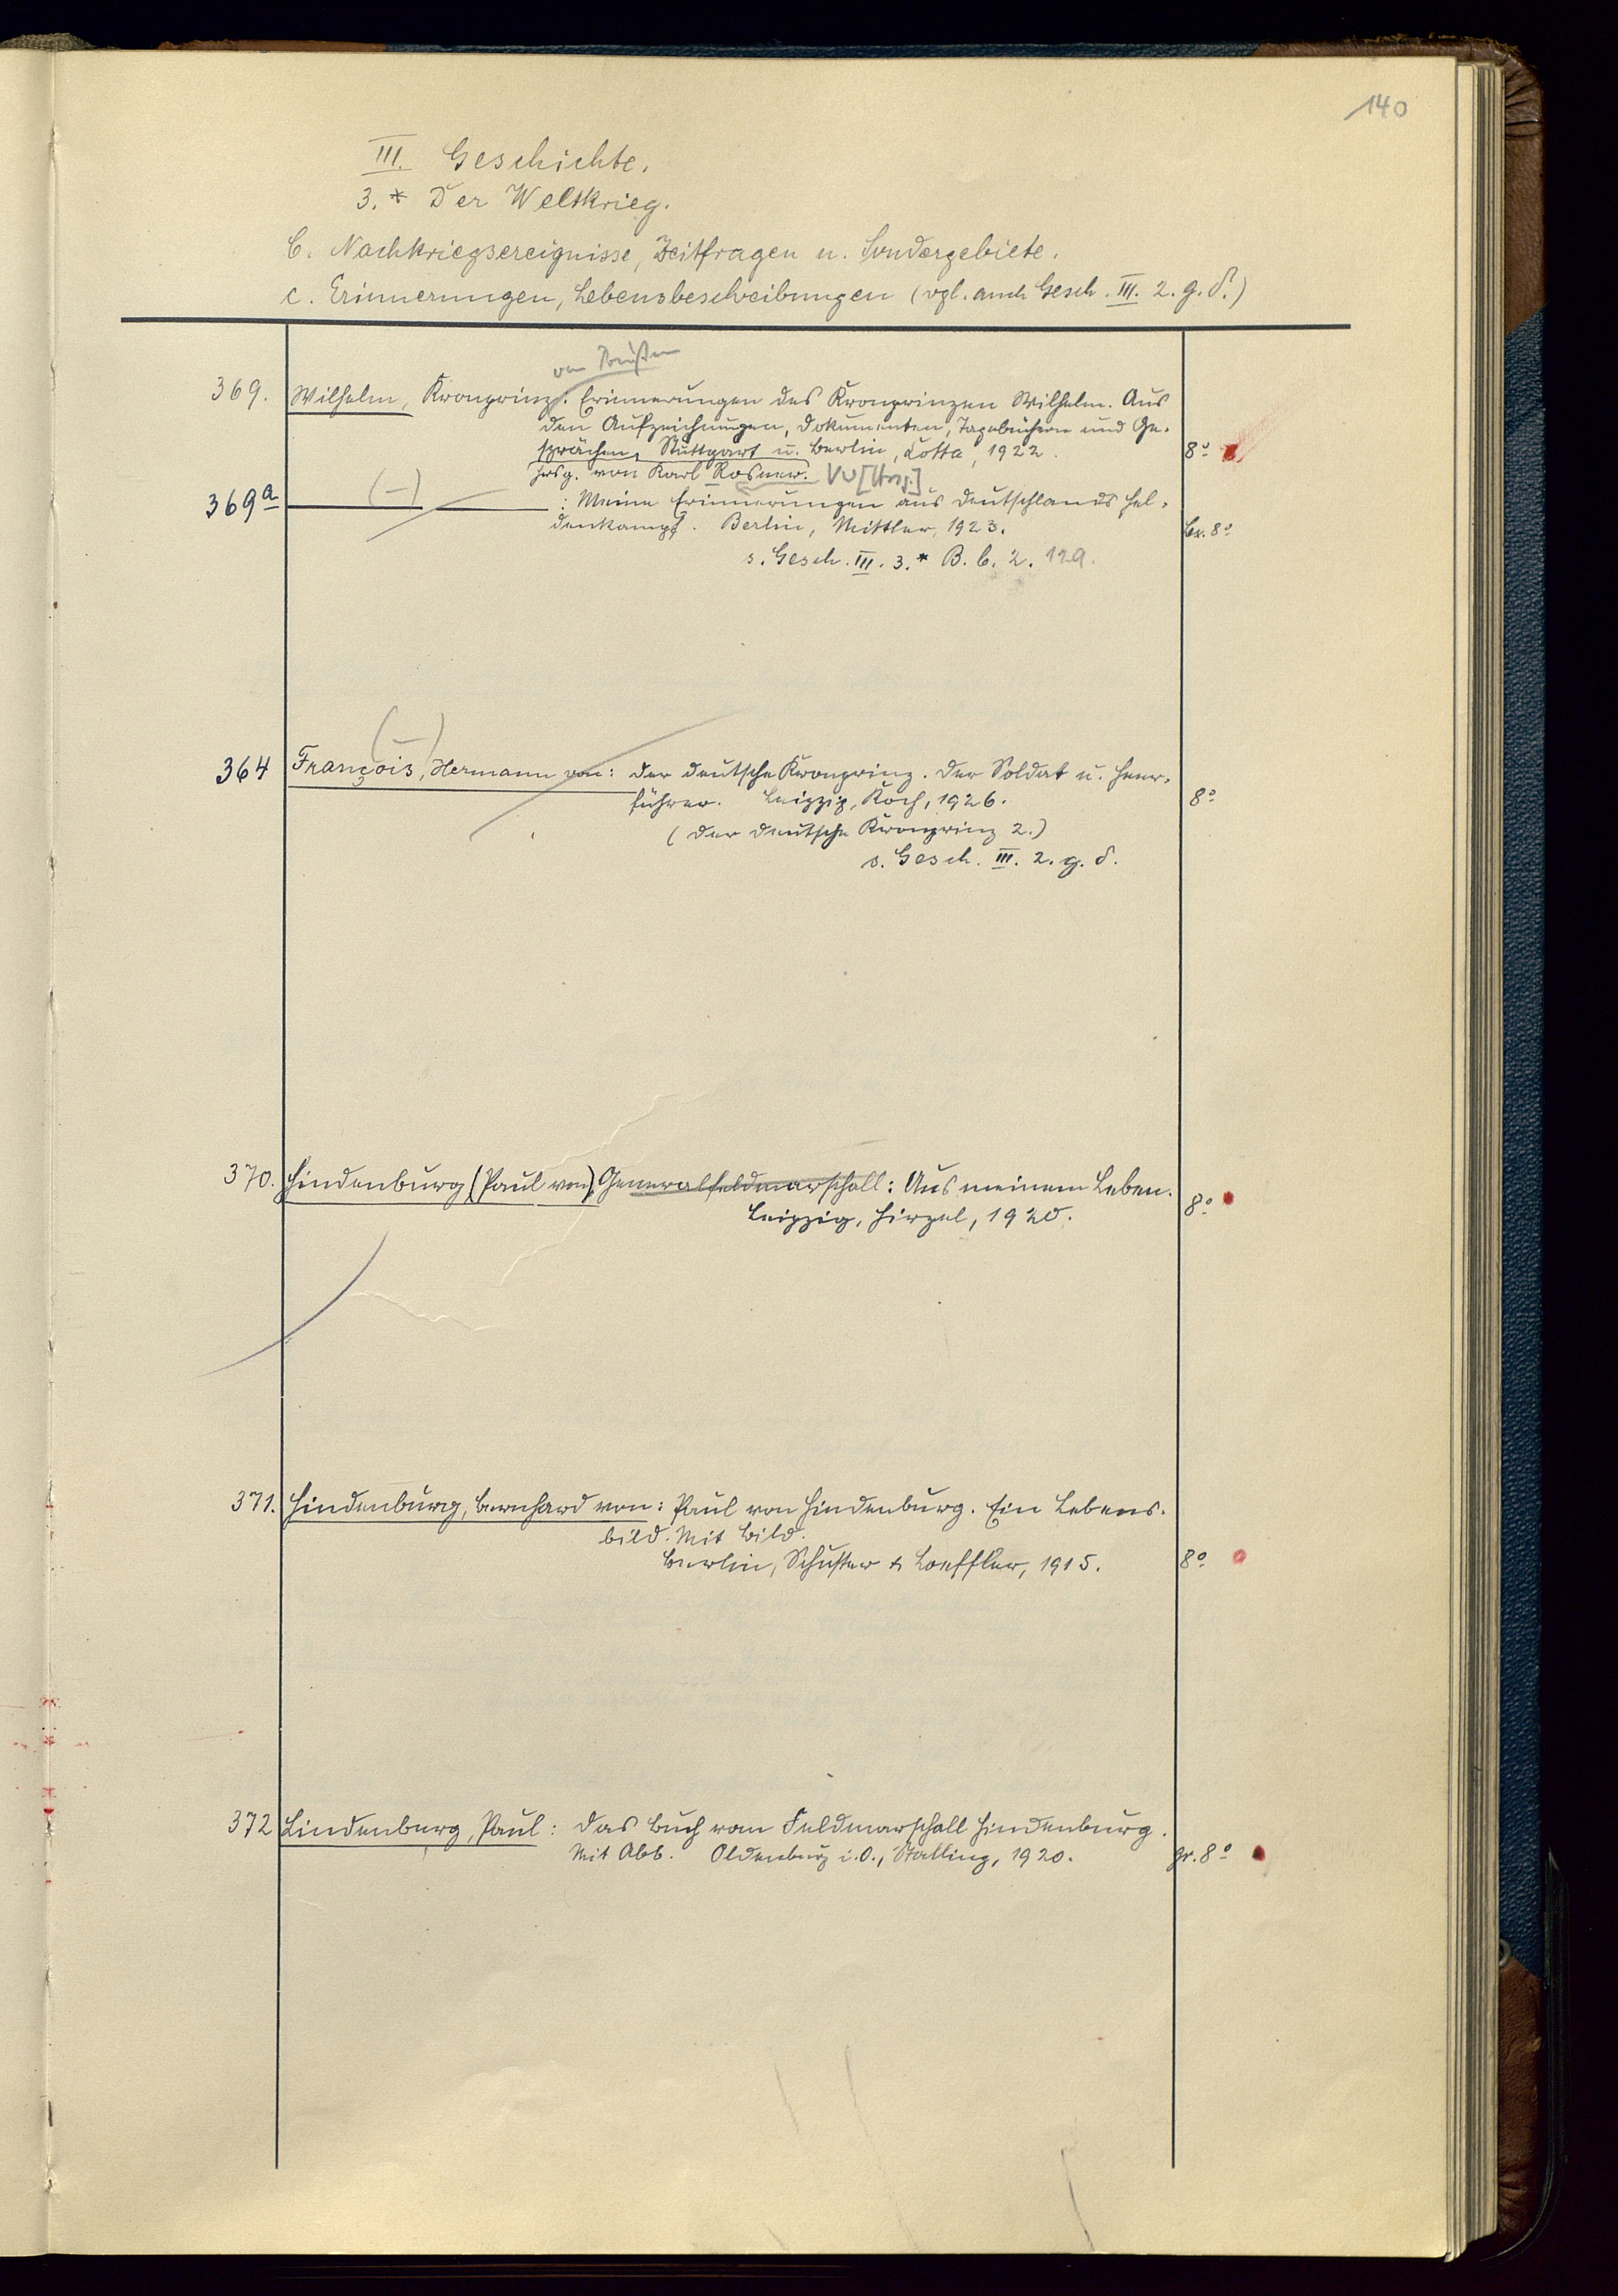 140
III. Geschichte.
3.* Der Weltkrieg.
C. Nachkriegsereignisse, Zeitfragen u. Sondergebiete.
c. Erinnerungen, Lebensbeschreibungen (vgl. auch Gesch. III. 2. g. δ.)
von Preußen
369. Wilhelm, Kronprinz: Erinnerungen des Kronprinzen Wilhelm. Aus
den Aufzeichnungen, Dokumenten, Tagebüchern und Ge-
sprächen, Stuttgart u. Berlin, Cotta, 1922. 8°
hrsg. von Karl Rosner. VW [Hrsg.]
369a (—) : Meine Erinnerungen aus Deutschlands Hel-
denkampf. Berlin, Mittler, 1923. Lex. 8°
s. Gesch. III. 3.* B. b. 2. 129.
(—)
364 François, Hermann von: Der deutsche Kronprinz. Der Soldat u. Heer-
führer. Leipzig, Koch, 1926. 8°
(Der deutsche Kronprinz 2.)
s. Gesch. III. 2. g. δ.
370. Hindenburg (Paul von), Generalfeldmarschall: Aus meinem Leben.
Leipzig, Hirzel, 1920. 8°
371. Hindenburg, Bernhard von: Paul von Hindenburg. Ein Lebens-
bild. Mit Bild.
Berlin, Schuster & Loeffler, 1915. 8°
372 Lindenburg, Paul: Das Buch vom Feldmarschall Hindenburg.
Mit Abb. Oldenburg i. O., Stalling, 1920. gr. 8°